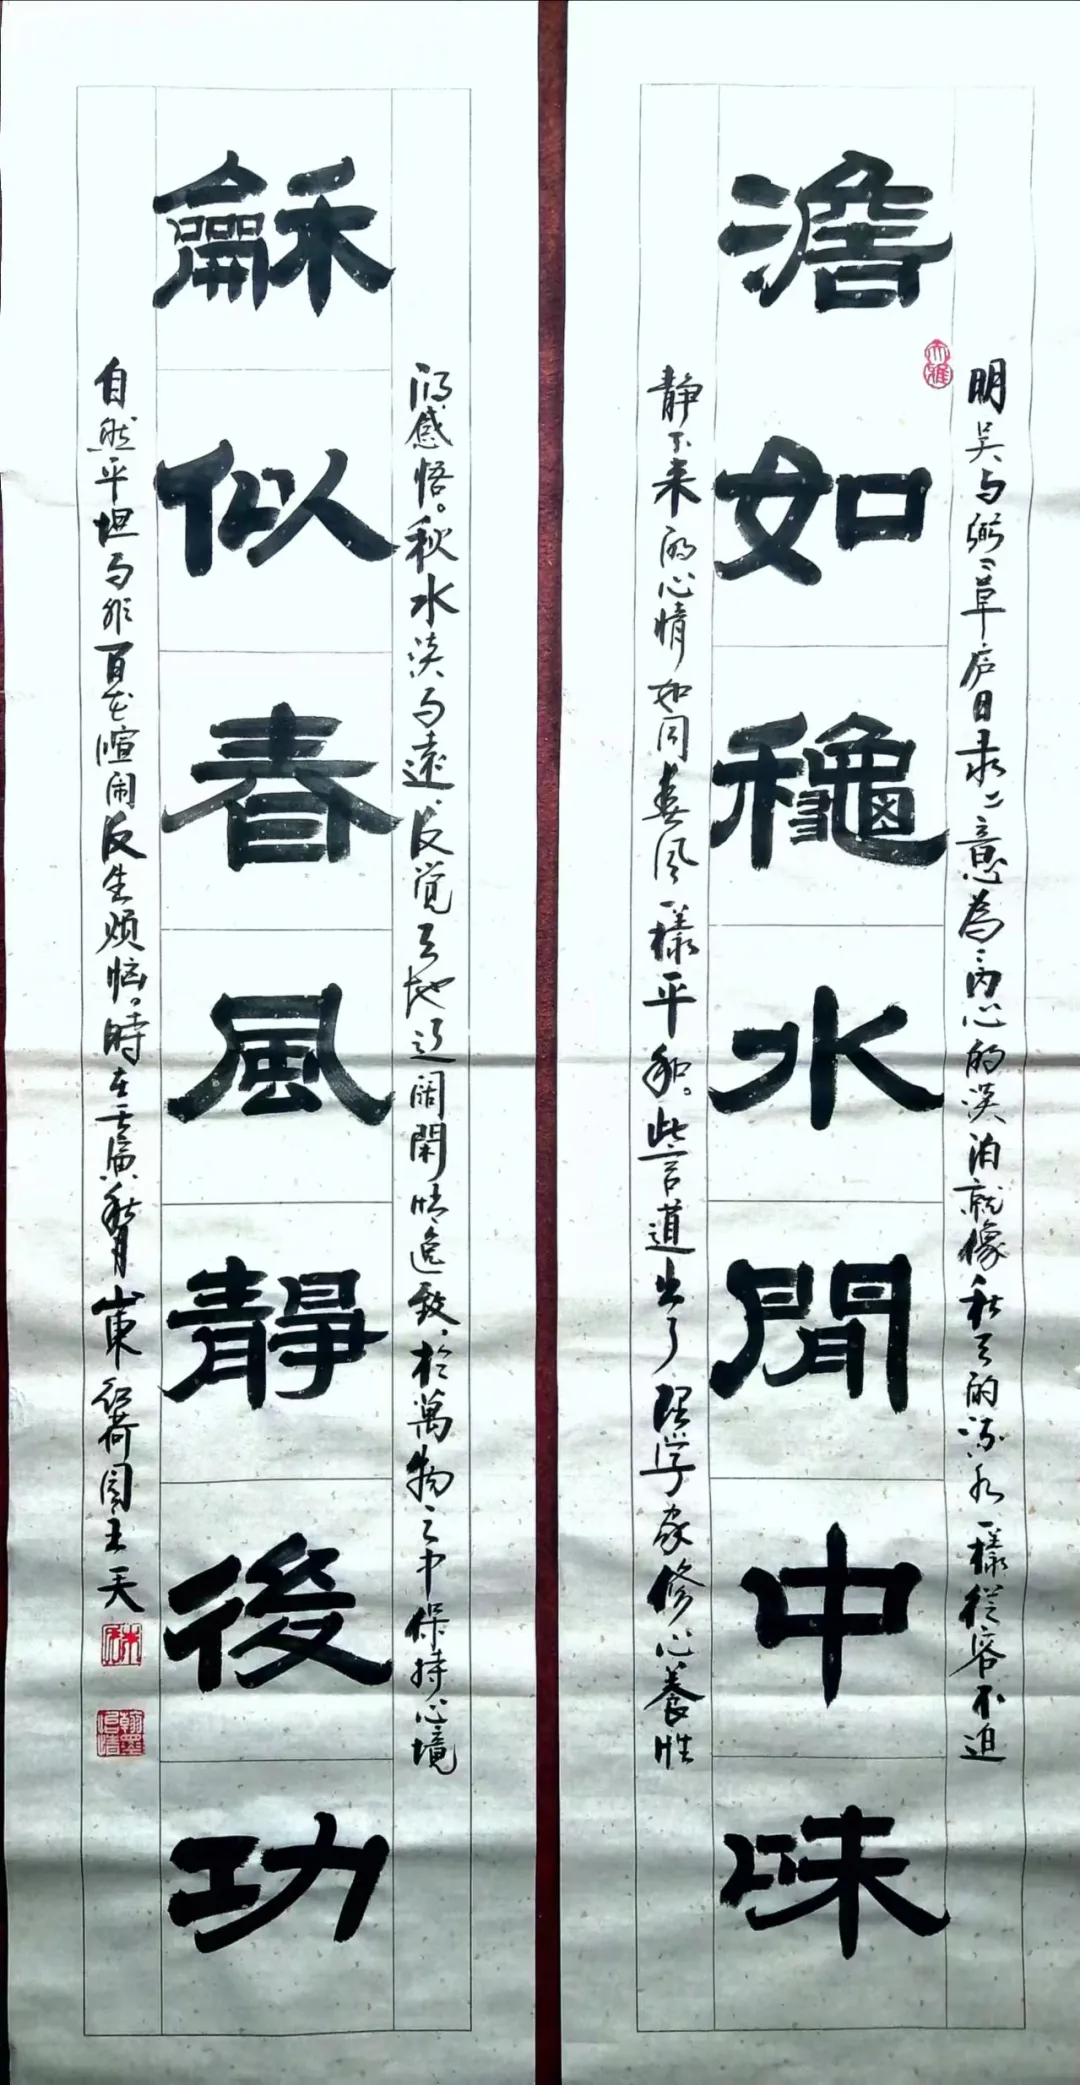 澹如龝水閒中味
明吴与弼草庐日录意為内心的淡泊就像秋天的流水一樣從容不迫
大雅
静下来的心情如同春风一樣平和。此言道出了理学家修心養性
龢似春風靜後功
的感悟。秋水淡与遠、反觉天地辽阔閑情逸致、於萬物之中保持心境
自然平坦与那百花喧闹反生烦恼。時在壬寅秋月山東红荷阁主天